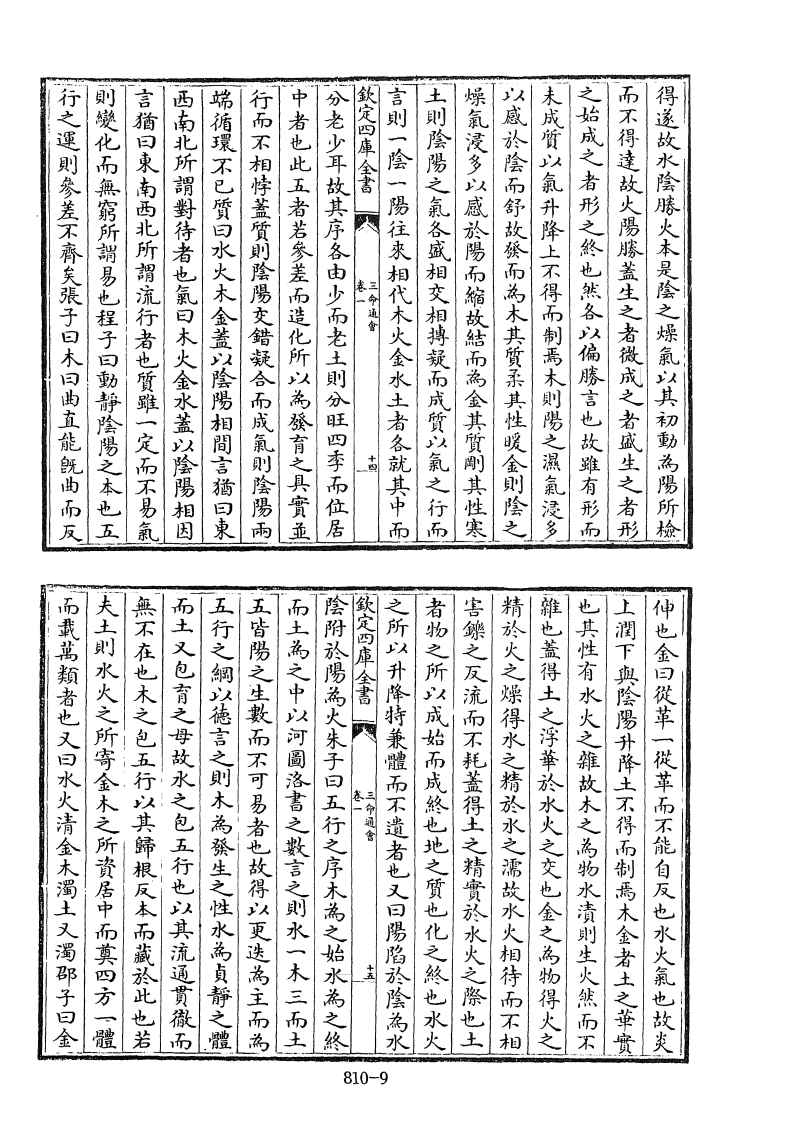 得遂故水陰勝火本是陰之燥氣以其初動為陽所檢
而不得達故火陽勝蓋生之者微成之者盛生之者形
之始成之者形之終也然各以偏勝言也故雖有形而
未成質以氣升降上不得而制焉木則陽之濕氣浸多
以感於陰而舒故發而為木其質柔其性暖金則陰之
燥氣浸多以感於陽而縮故結而為金其質剛其性寒
土則陰陽之氣各盛相交相搏凝而成質以氣之行而
言則一陰一陽往來相代木火金水土者各就其中而
欽定四庫全書
三命通會
卷一
十四
分老少耳故其序各由少而老土則分旺四季而位居
中者也此五者若參差而造化所以為發育之具實並
行而不相悖蓋質則陰陽交錯凝合而成氣則陰陽兩
端循環不已質曰水火木金蓋以陰陽相間言猶曰東
西南北所謂對待者也氣曰木火金水蓋以陰陽相因
言猶曰東南西北所謂流行者也質雖一定而不易氣
則變化而無窮所謂易也程子曰動靜陰陽之本也五
行之運則參差不齊矣張子曰木曰曲直能旣曲而反
伸也金曰從革一從革而不能自反也水火氣也故炎
上潤下與陰陽升降土不得而制焉木金者土之華實
也其性有水火之雜故木之為物水漬則生火然而不
離也蓋得土之浮華於水火之交也金之為物得火之
精於火之燥得水之精於水之濡故水火相待而不相
害鑠之反流而不耗蓋得土之精實於水火之際也土
者物之所以成始而成終也地之質也化之終也水火
之所以升降特兼體而不遺者也又曰陽陷於陰為水
欽定四庫全書
三命通會
卷一
十五
陰附於陽為火朱子曰五行之序木為之始水為之終
而土為之中以河圖洛書之數言之則水一木三而土
五皆陽之生數而不可易者也故得以更迭為主而為
五行之綱以德言之則木為發生之性水為貞靜之體
而土又包育之母故水之包五行也以其流通貫徹而
無不在也木之包五行以其歸根反本而藏於此也若
夫土則水火之所寄金木之所資居中而奠四方一體
而載萬類者也又曰水火清金木濁土又濁邵子曰金
810-9